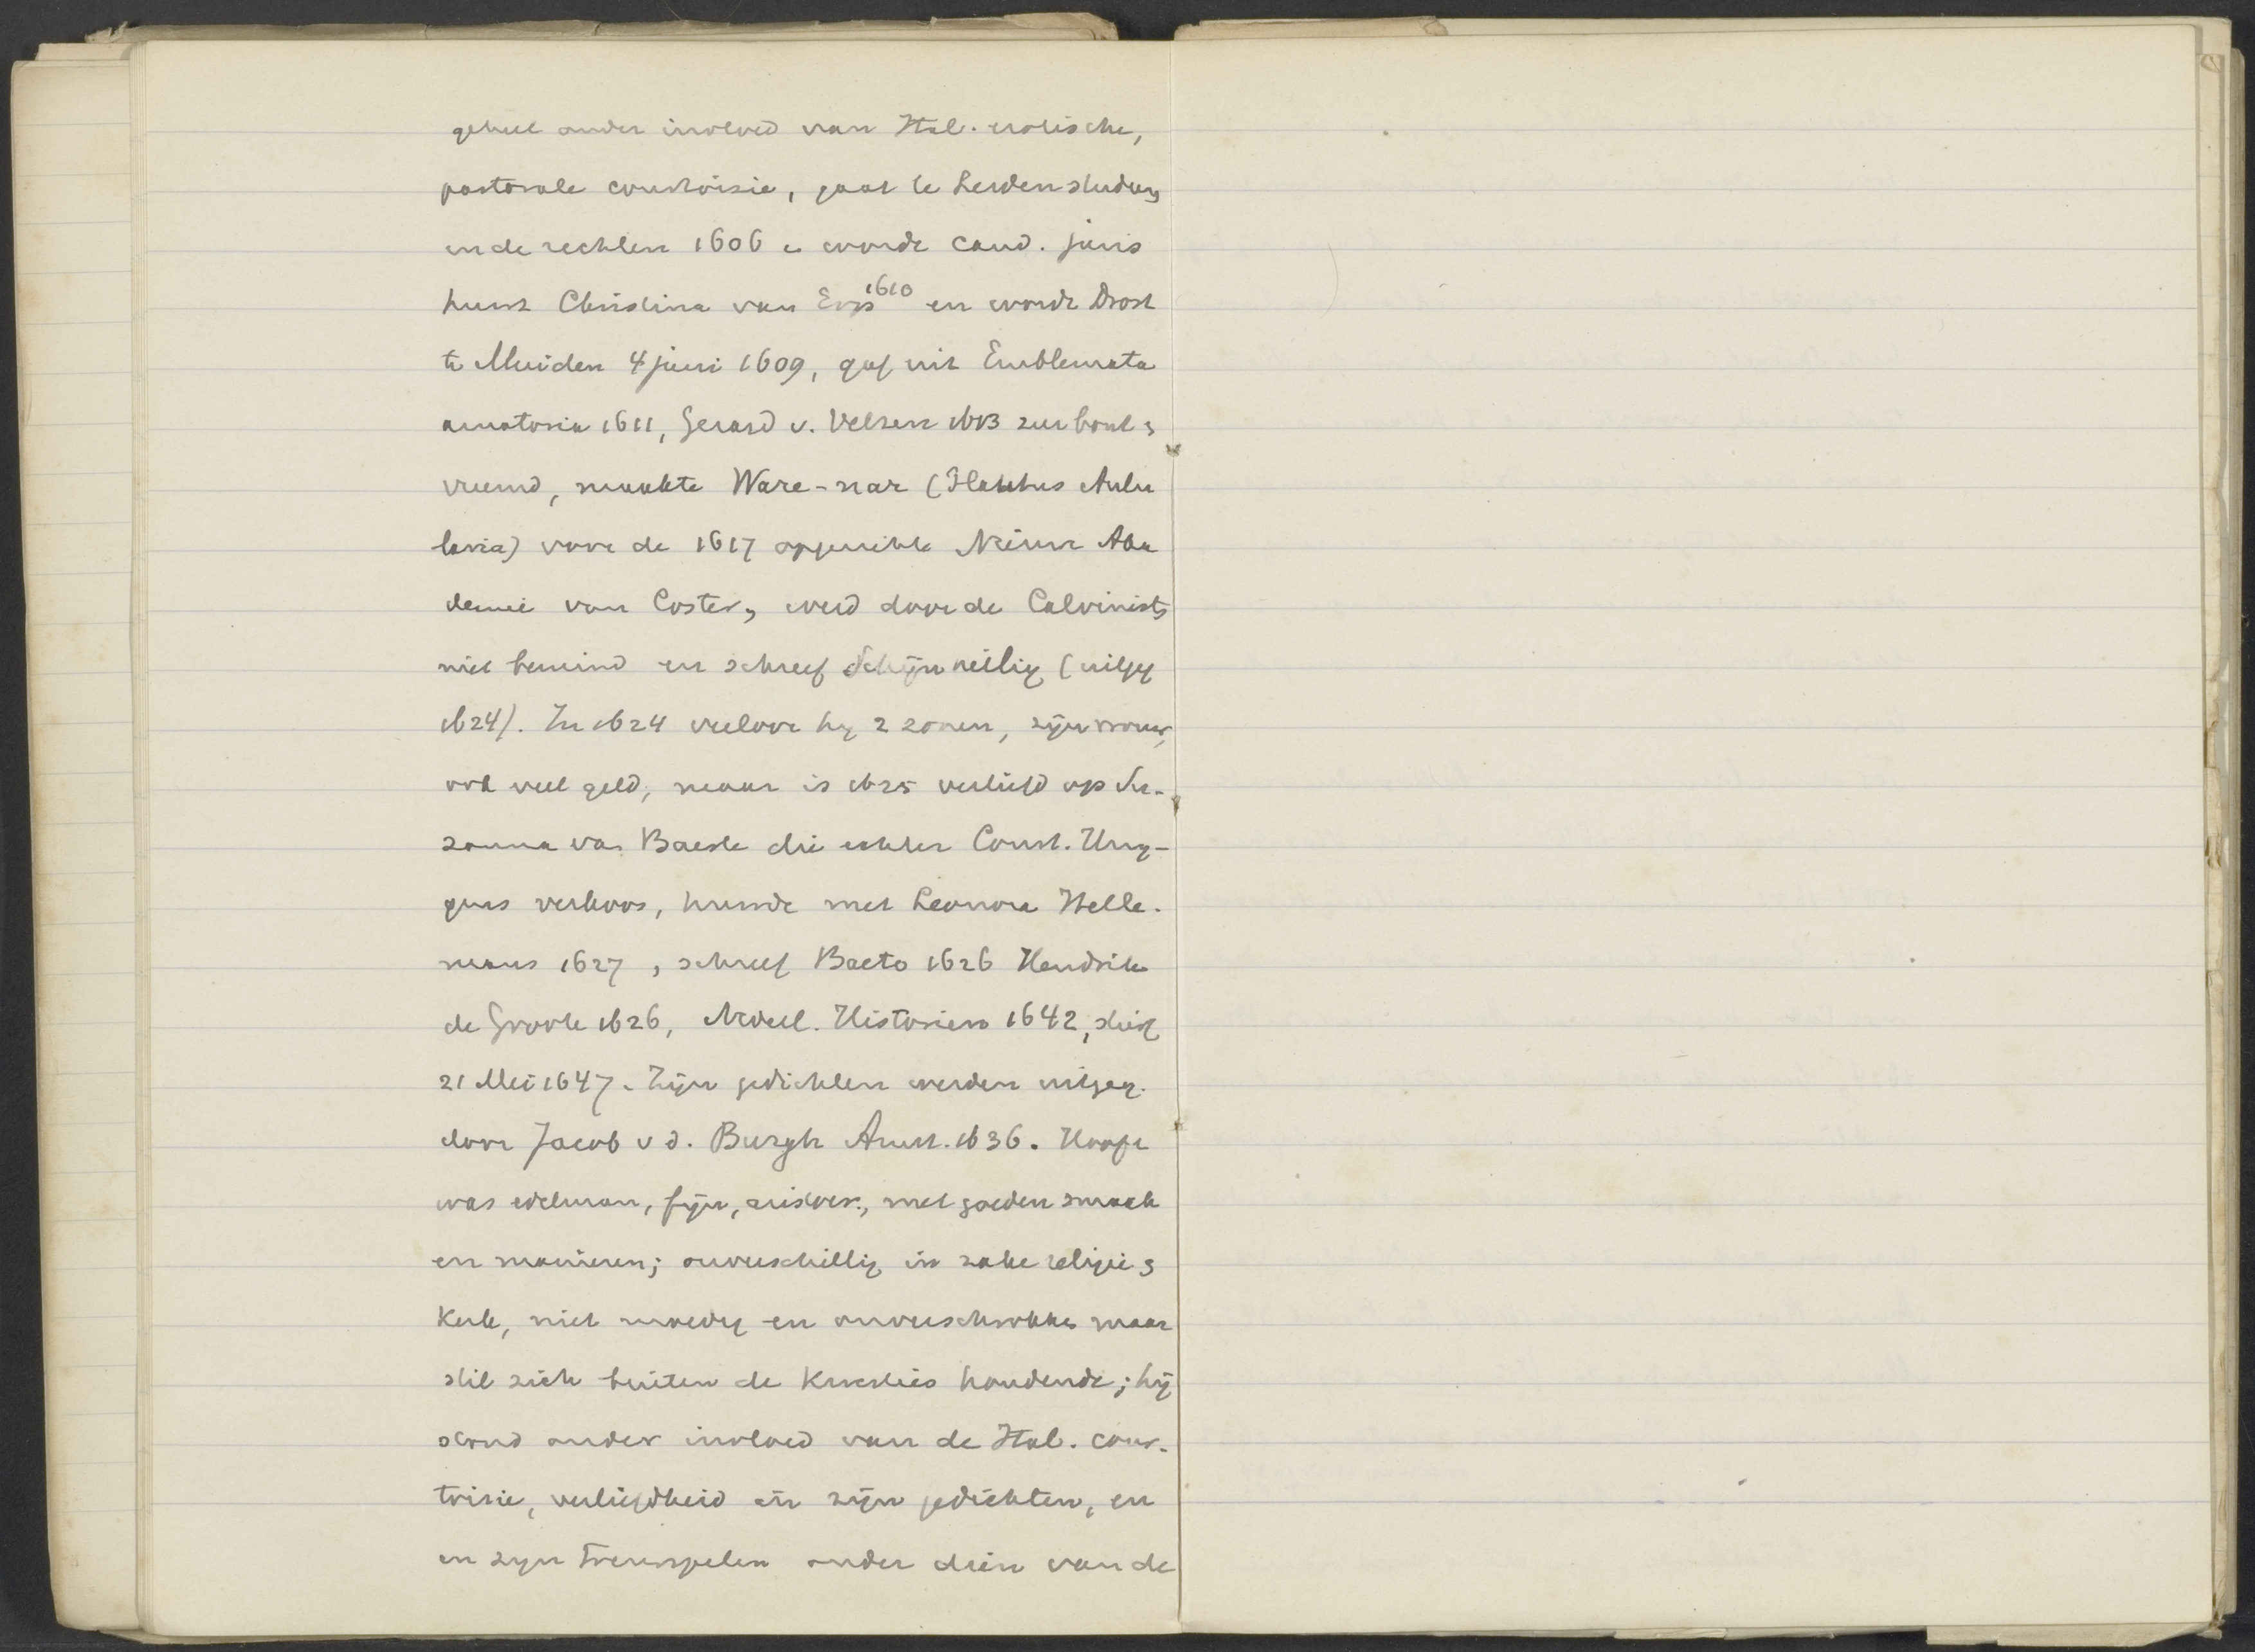 geheel onder invloed van Ital. erotische,
pastorale courtoisie, gaat te Leiden studeren
in de rechten 1606 e wordt cand. juris
huwt Christina van Erp 1610 en wordt Drost
te Muiden 4 juni 1609, gaf uit Emblemata
amatoria 1611, Gerard v. Velsen 1613
vreemd, maakte Ware-nar (Plautus Aulu
laria) voor de 1617 opgerichte Nieuwe Aka
demie van Coster, werd door de Calvinisten
niet bemind en schreef Schijnheilig (uitgeg
1624). In 1624 verloor hij 2 zonen, zijn vrouw,
ook veel geld, maar is 1625 verliefd op Su-
zanna van Baerle die echter Const. Huy-
gens verkoos, huwde met Leonora Helle-
mans 1627, schreef Baeto 1626 Hendrik
de Groote 1626, Nederl. Historien 1642, stierf
21 Mei 1647. Zijn gedichten werden uitgeg.
door Jacob v d. Burgh Amst. 1636. Hooft
was edelman, fijn, aristocr., met goeden smaak
en manieren; onverschillig in zake religie en
Kerk, niet moedig en onverschrokken maar
stil zich buiten de Kwesties houdende; hij
stond onder invloed van de Ital. cour-
toisie, verliefdheid in zijn gedichten, en
in zijn Treurspelen onder dien van de